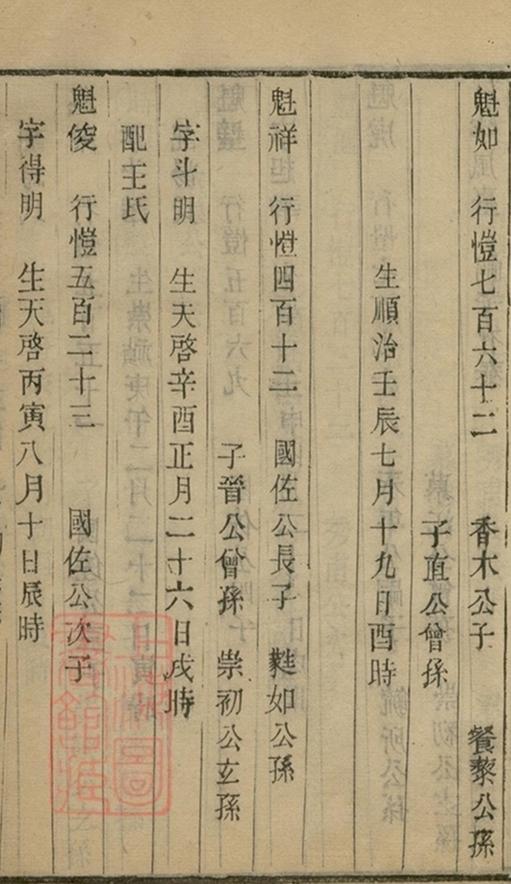 魁如　行愷七百六十二　香木公子　餐藜公孫
子直公曾孫
生順治壬辰七月十九日酉時
魁祥　行愷四百十二　國佐公長子　甦如公孫
子晉公曾孫　崇初公玄孫
字斗明　生天啓辛酉正月二十六日戌時
配王氏
魁俊　行愷五百二十三　國佐公次子
字得明　生天啓丙寅八月十日辰時